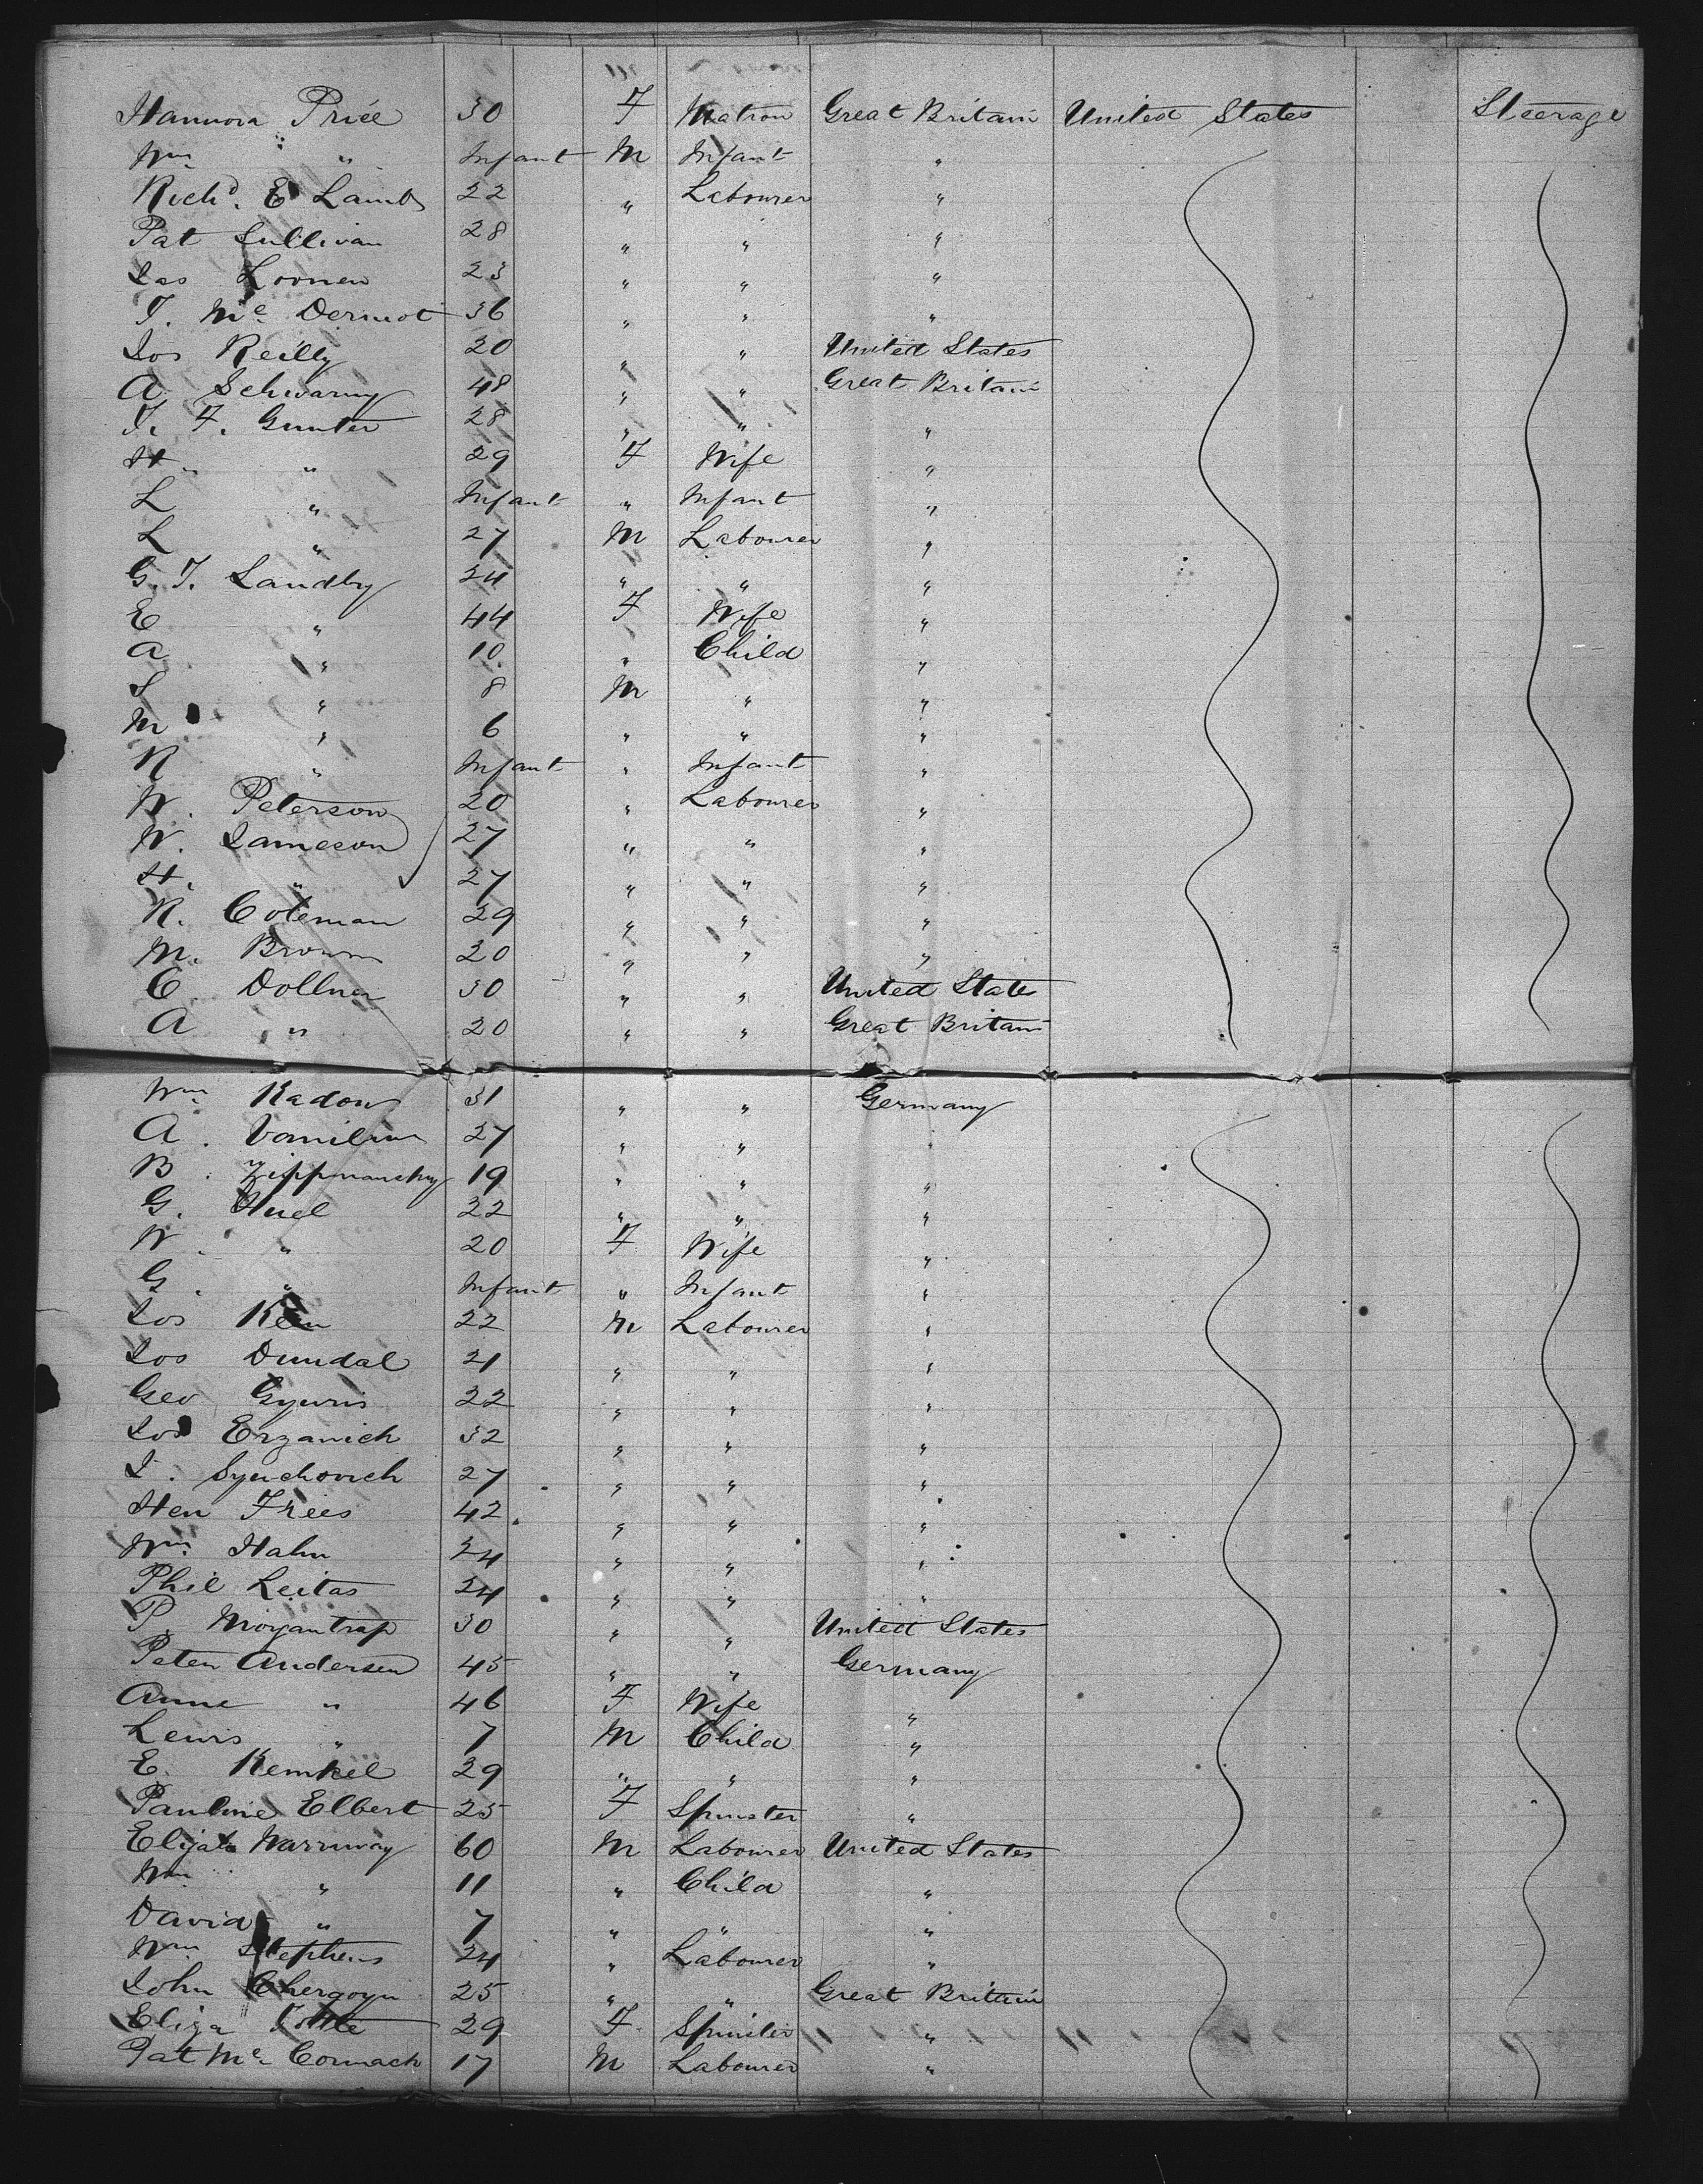 Hannora Price 30 F Matron Great Britain United States Steerage
Wm " " Infant M Infant "
Richd. E Lamb 22 " Labourer "
Pat Sullivan 28 " " "
Jas Loonen 23 " " "
J. Mc Dermot 36 " " "
Jos Reilly 20 " " United States
A Schwarmy 48 " " Great Britain
J. F. Gunter 28 " " "
H " 29 F Wife "
L " Infant " Infant "
L " 27 M Labourer "
G. J. Landby 24 " " "
E " 44 F Wife "
A " 10 " Child "
S " 8 M " "
M " 6 " " "
R " Infant " Infant "
W. Peterson 20 " Labourer "
W. Jameson 27 " " "
H. " 27 " " "
R. Coleman 29 " " "
M. Brown 20 " " "
C Dollner 30 " " United States
A " 20 " " Great Britain
Wm Radow 31 " " Germany
A. 27 " " "
B. Zippmanchy 19 " " "
G. Huel 22 " " "
W. " 20 F Wife "
G. " Infant " Infant "
Jos 22 M Labourer "
Jos Dundal 21 " " "
Geo Gyuris 22 " " "
Jos Erzanich 32 " " "
I. Synchovich 27 " " "
Hen Frees 42 " " "
Wm Hahn 24 " " "
Phil Leitas 24 " " "
P. Moyantrap 30 " " United States
Peter Andersen 45 " " Germany
Anne " 46 F Wife "
Lewis " 7 M Child "
E. Kemkel 29 " " "
Pauline Elbert 25 F Spinster "
Elijah Warrnway 60 M Labourer United States
Wm " 11 " Child "
David " 7 " " "
Wm Stephens 24 " Labourer "
John Chergoyn 25 " " Great Britain
Eliza 29 F Spinster "
Pat Mc Cormack 17 M Labourer "